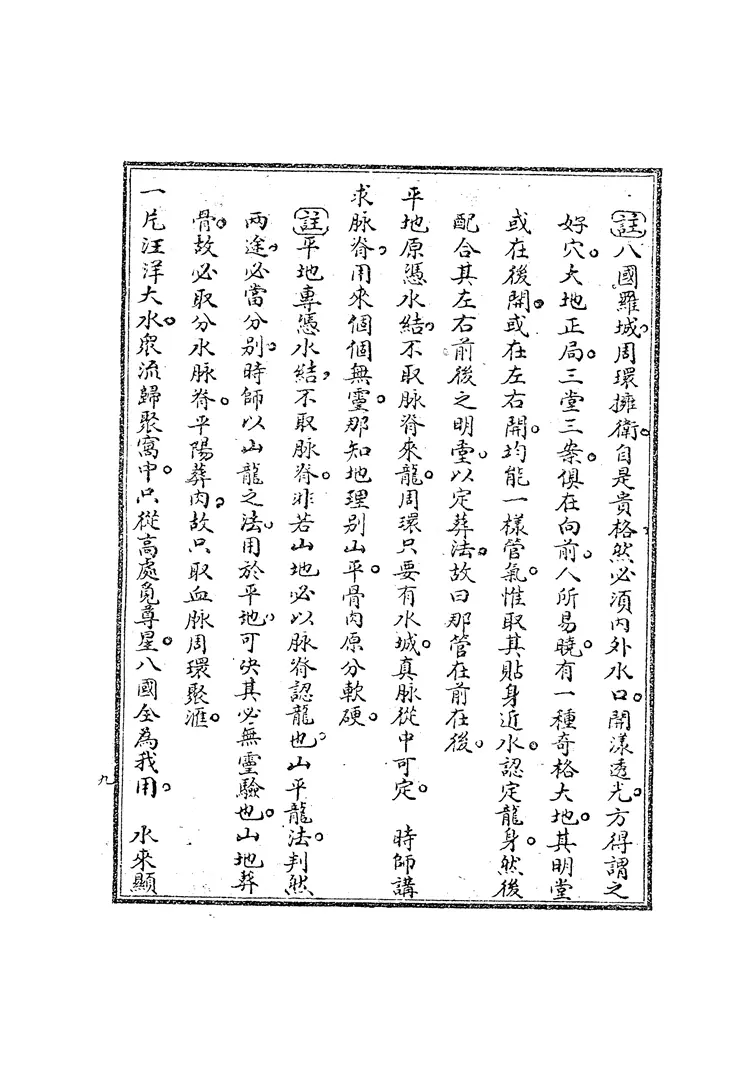 註八國羅城。周環擁衛。自是貴格。然必須內外水口。開漾透光。方得謂之
好穴。大地正局。三堂三案。俱在向前。人所易曉。有一種奇格大地。其明堂
或在後開。或在左右開。均能一樣管氣。惟取其貼身近水。認定龍身。然後
配合其左右前後之明堂。以定葬法。故曰那管在前在後。
平地原憑水結。不取脉脊來龍。周環只要有水城。真脉從中可定。 時師講
求脉脊。用來個個無靈。那知地理別山平。骨肉原分軟硬。
註平地專憑水結。不取脉脊。非若山地必以脉脊認龍也。山平龍法。判然
兩途。必當分別。時師以山龍之法。用於平地。可决其必無靈驗也。山地葬
骨。故必取分水脉脊。平陽葬肉。故只取血脉周環聚滙。
一片汪洋大水。衆流歸聚窩中。只從高處覓尊星。八國全為我用。 水來顯
九